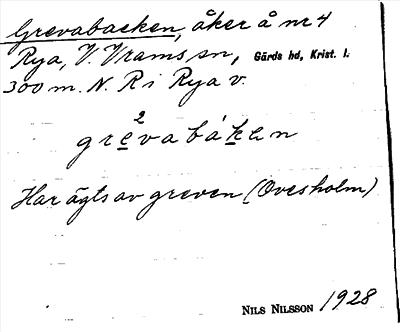 Grevabacken, åker å nr 4
Rya, V. Vrams sn, Gärds hd, Krist. l.
300 m. N. R i Rya v.
2
grevabáken
Har ägts av greven (Ovesholm)
NILS NILSSON 1928